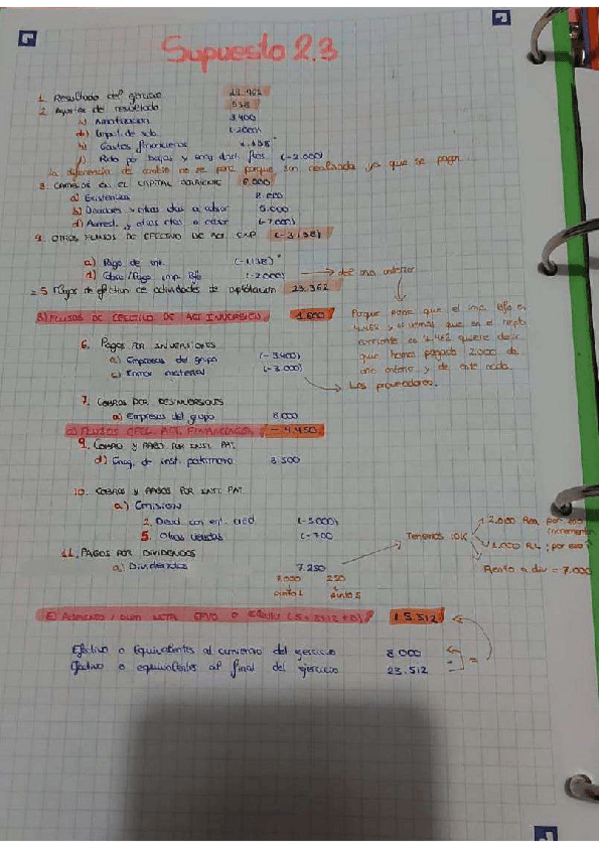 Supuesto 2.3
1. Resultado del ejercicio
2. Ajustes del resultado 538
a) Amortización 3.400
(-2000)
h) Gastos financieros
(-2.000)
la diferencia de cambio no se pone porque son realizada ya que se pagan...
3. CAMBIOS EN EL CAPITAL CORRIENTE 6.000
a) Existencias 8.000
b) Deudores y otras ctas a cobrar 5.000
d) Acreed. y otras ctas a pagar (-7.000)
4. OTROS FLUJOS DE EFECTIVO DE ACT. EXP (-3.138)
a) Pago de int. (-1.138)*
(-2.000) → del año anterior
= 5 Flujos de efectivo de actividades de explotación 23.362
B) FLUJOS DE EFECTIVO DE ACT INVERSIÓN 1.600
6. PAGOS POR INVERSIONES
a) Empresas del grupo (-3.400)
c) Inmov material (-3.000)
→ Los proveedores.
Porque pone que el imp. Bfo es
que hemos pagado 2.000 de
año anterior y de este nada.
7. COBROS POR DESINVERSIONES
a) Empresas del grupo 8.000
C) FLUJOS EFEC. ACT. FINANCIACIÓN -9.450
9. COBROS Y PAGOS POR INST. PAT.
d) Enaj. de inst. patrimonio 3.500
10. COBROS Y PAGOS POR INST. PAT
a) Emisión
2. Deud. con ent. cred. (-5000)
5. Otras deudas (-700
11. PAGOS POR DIVIDENDOS
a) Dividendos 7.250
7.000 250
punto 1 punto 5
Tenemos 10K
2.000 Res.
1.000 R.L
Resto a div = 7.000
15.512
Efectivo o Equivalentes al comienzo del ejercicio 8.000
Efectivo o equivalentes al final del ejercicio 23.512